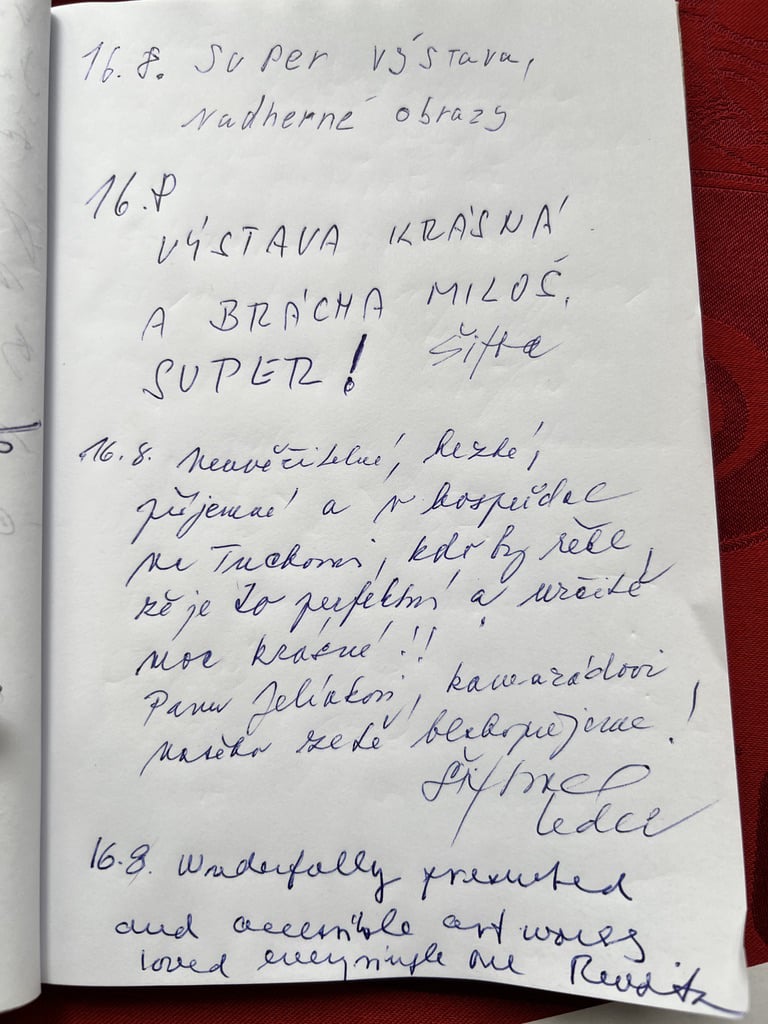 16.8. Super výstava,
nadherné obrazy
16.8
VÝSTAVA KRÁSNÁ
A BRÁCHA MILOŠ.
SUPER!
16.8. Neuvěřitelné, hezké,
příjemné a v hospůdce
na Tuchoni, kdo by řekl,
že je to perfektní a určitě
moc krásné!!
Panu Jelínkovi, kamarádovi
našeho zetě blahopřejeme!
16.8. Wonderfully presented
and accessible art works
loved every single one